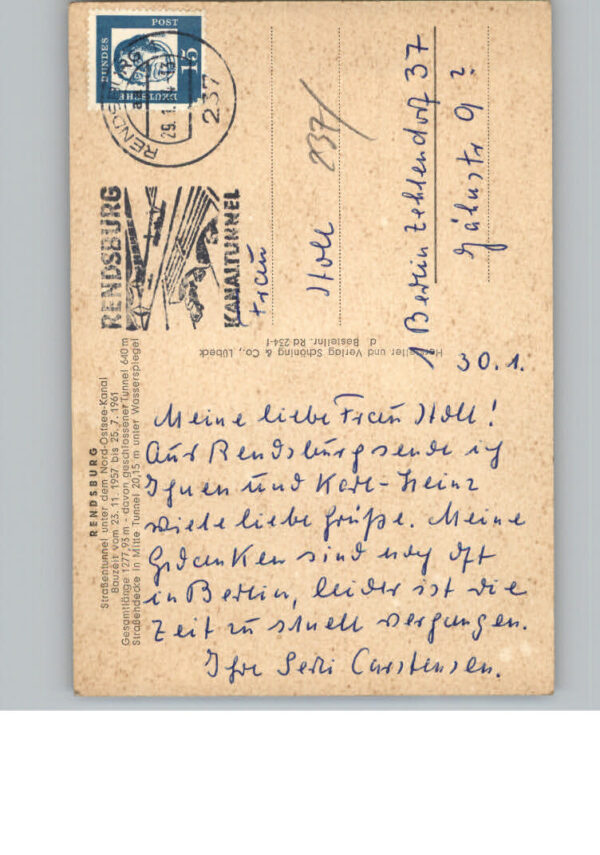 DEUTSCHE
BUNDES
POST
15
RENDSBURG
29.1.
237
RENDSBURG
KANALTUNNEL
Frau
Holl
237/
1 Berlin Zehlendorf 37
9 ?
Hersteller und Verlag Schöning & Co., Lübeck
d Bestellnr. Rd 234-f
RENDSBURG
Straßentunnel unter dem Nord-Ostsee-Kanal
Bauzeit vom 23. 11. 1957 bis 25. 7. 1961
Gesamtlänge 1277,93 m - davon geschlossener Tunnel 640 m
Straßendecke in Mitte Tunnel 20,15 m unter Wasserspiegel
30.1.
Meine liebe Frau Holl!
Aus Rendsburg sende ich
Ihnen und Karl-Heinz
viele liebe Grüße. Meine
Gedanken sind noch oft
in Berlin, leider ist die
Zeit zu schnell vergangen.
Ihre Carstensen.